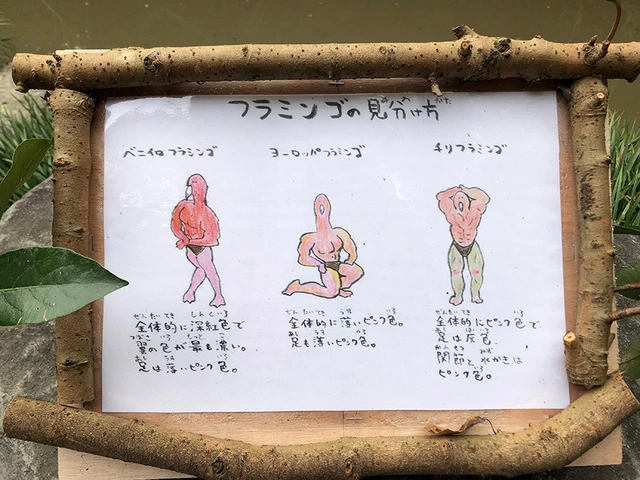 フラミンゴの見分け方
ベニイロフラミンゴ
全体的に深紅色で
翼の色が最も濃い。
足は薄いピンク色。
ヨーロッパフラミンゴ
全体的に薄いピンク色。
足も薄いピンク色。
チリフラミンゴ
全体的にピンク色で
足は灰色。
関節と水かきは
ピンク色。